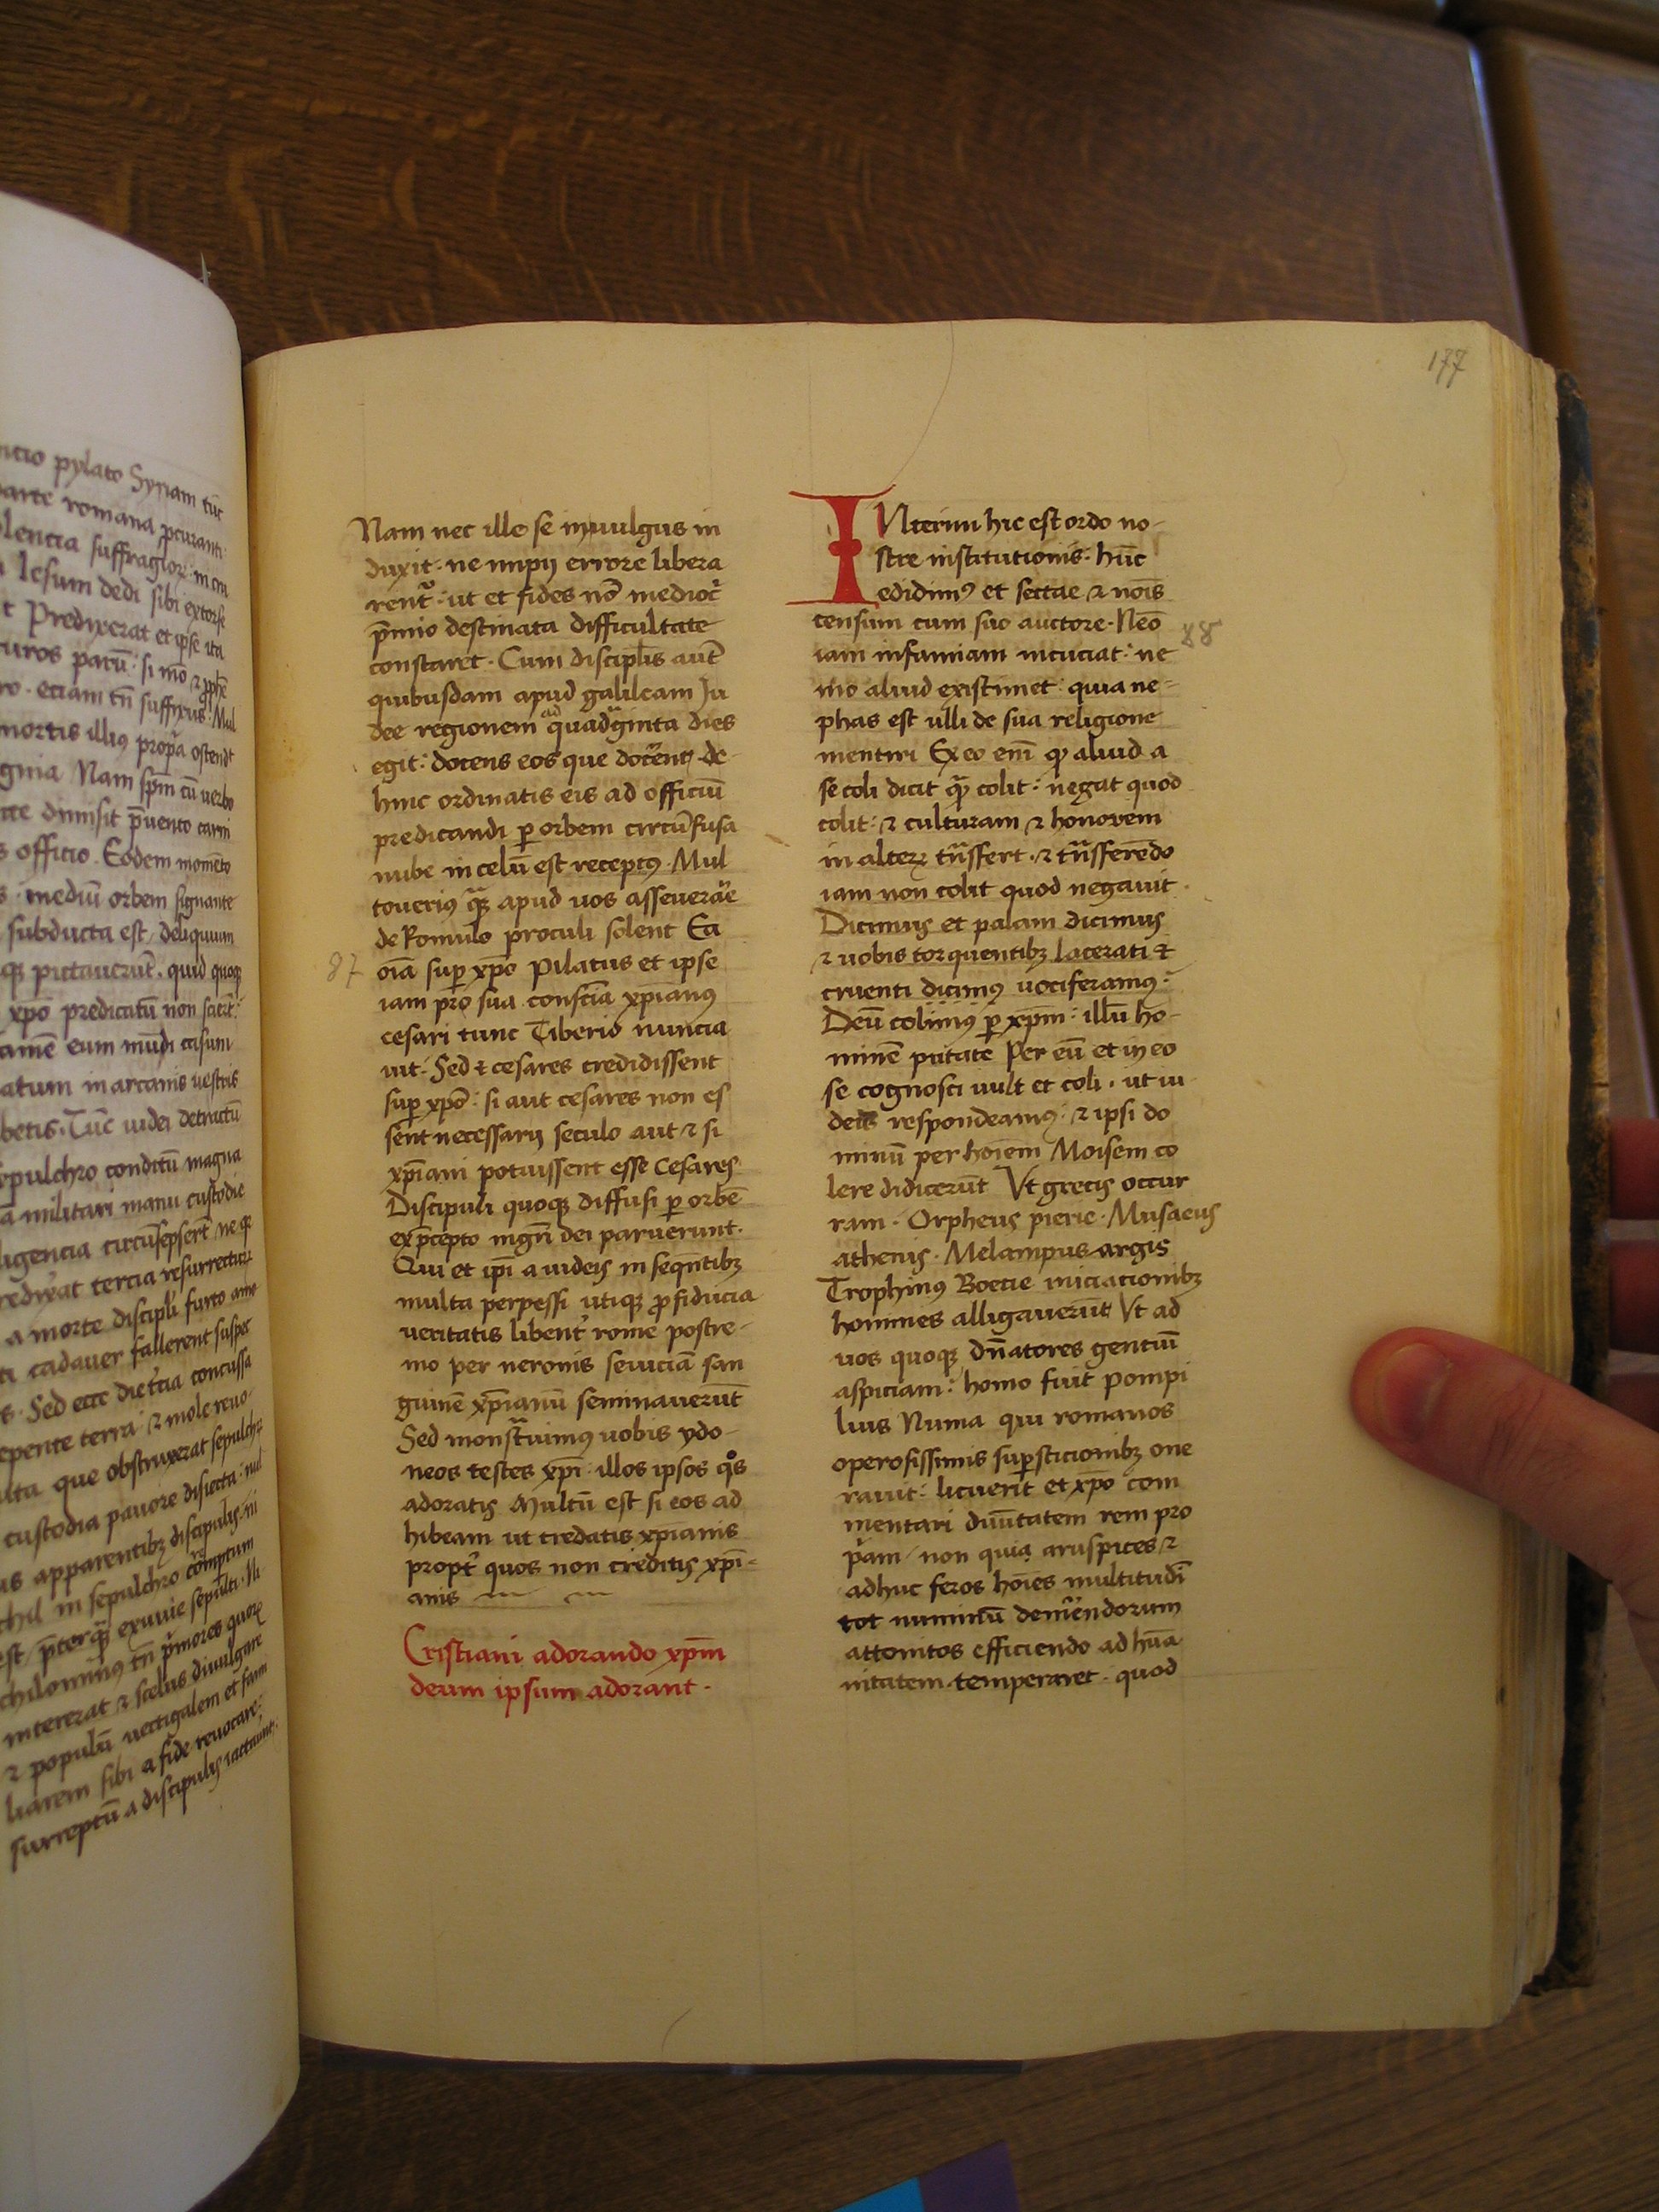 ntio pylato Syriam tūc
parte romana ꝓcuranti
lencia suffragioꝝ in cru
Iesum dedi sibi extorse
t Predixerat et ip̄e ita
turos patū: si mō ⁊ ꝓphē
ro. etiam tn̄ suffixus Mul
mortis illiꝰ propͣa ostend̄t
gnia Nam sp̄m cū verbo
te dimisit p̄uento carni
s officio. Eodem momēto
s mediū orbem signante
subducta est, deliquium
qꝫ putaverūt. quid quoqꝫ
xp̄o predicatū non scierūt:
tamē eum mūdi casum
atum in arcanis vestris
betis. Tūc iudei detractū
sepulchro conditū magna
ā militari manu custodie
ligencia circūsepserūt ne qꝛ
rediẽat tercia resurrecturū
a morte discipli furto amo
ti cadauer fallerent suspec
s. Sed ecce die tercia concussa
epente terra ⁊ mole reuo
uta que obstruxerat sepulchꝝ
custodia pauore disiecta: nul
is apparentibꝫ discipulis. ni
chil in sepulchro cōmptum
est, p̄terqͣꝫ exuuie sepulti. Ni
chilominꝰ tn̄ pͥmores quoꝝ
intererat ⁊ scelus diuulgare
⁊ populū vectigalem et fam
liarem sibi a fide reuocare:
surreptū a discipulis iactauerunt.
177
Nam nec ille se in vulgus in
duxit: ne impij errore libera
rentͬ: ut et fides nō mediocͬ
p̄mio destinata difficultate
constaret. Cum discipl̄is aut̄
quibusdam apud galileam Ju
dee regionem ad quadͣginta dies
egit: docens eos que docērent, de
hinc ordinatis eis ad officiū
predicandi ꝑ orbem circūfusa
nube in celū est receptꝰ. Mul
to veriꝰ qͣꝫ apud vos asseverāe
de Romulo proculi solent Ea
87
oīa suꝑ xp̄o Pilatus et ipse
iam pro sua consciā xp̄ianꝰ
cesari tunc Tiberio nuncia
uit. Sed ⁊ cesares credidissent
suꝑ xp̄o: si aut cesares non es
sent necessarij seculo aut ⁊ si
xp̄iani potuissent esse Cesares
Discipuli quoqꝫ diffusi ꝑ orbē
ex p̄cepto mgr̄i dei paruerunt.
Qui et ip̄i a iudeis in seqn̄tibꝫ
multa perpessi utiqꝫ ꝓ fiducia
veritatis libentͬ rome postre-
mo per neronis seuiciā san
guinē xp̄ianū seminaverūt
Sed monstͣuimꝰ vobis ydo-
neos testes xp̄i: illos ipsos qͦs
adoratis Multū est si eos ad
hibeam ut credatis xp̄ianis
proptͬ quos non creditis xp̄i-
anis
Cristiani adorando xp̄m
deum ipsum adorant.
INterim hic est ordo no-
stre institutionis: hūc
edidimꝰ et sectae ⁊ nois
censum cum suo auctore. Nēo
88
iam infamiam incuciat: ne
mo aliud existimet: quia ne-
phas est ulli de sua religione
mentiri Ex eo em̄ qꝫ aliud a
se coli dicit qͣꝫ colit: negat quod
colit: ⁊ culturam ⁊ honorem
in alterꝝ tn̄sfert. ⁊ tn̄sferēdo
iam non colit quod negauit.
Dicimus et palam dicimus
⁊ vobis torquentibꝫ lacerati ⁊
cruenti dicimꝰ vociferamꝰ:
Deū colimꝰ ꝑ xp̄m: illū ho-
minē putate Per eū et in eo
se cognosci vult et coli. ut iu
deis respondeamꝰ: ⁊ ipsi do
minū per hoīem Moisem co
lere didicerūt Vt grecis occur
ram. Orpheus pierie. Musaeus
athenis. Melampus argis
Trophinꝰ Boetie iniciationibꝫ
homines alligauerūt Vt ad
vos quoqꝫ dn̄atores gentiū
aspiciam: homo fuit Pompi
lius Numa qui romanos
operosissimis suꝑsticionibꝫ one
rauit: licuerit et xp̄o com
mentari diuītatem rem pro
pͥam, non quia aruspices ⁊
adhuc feros hoīes multitudī
tot numinū demēendorum
attonitos efficiendo ad hūa
nitatem temperaret. quod